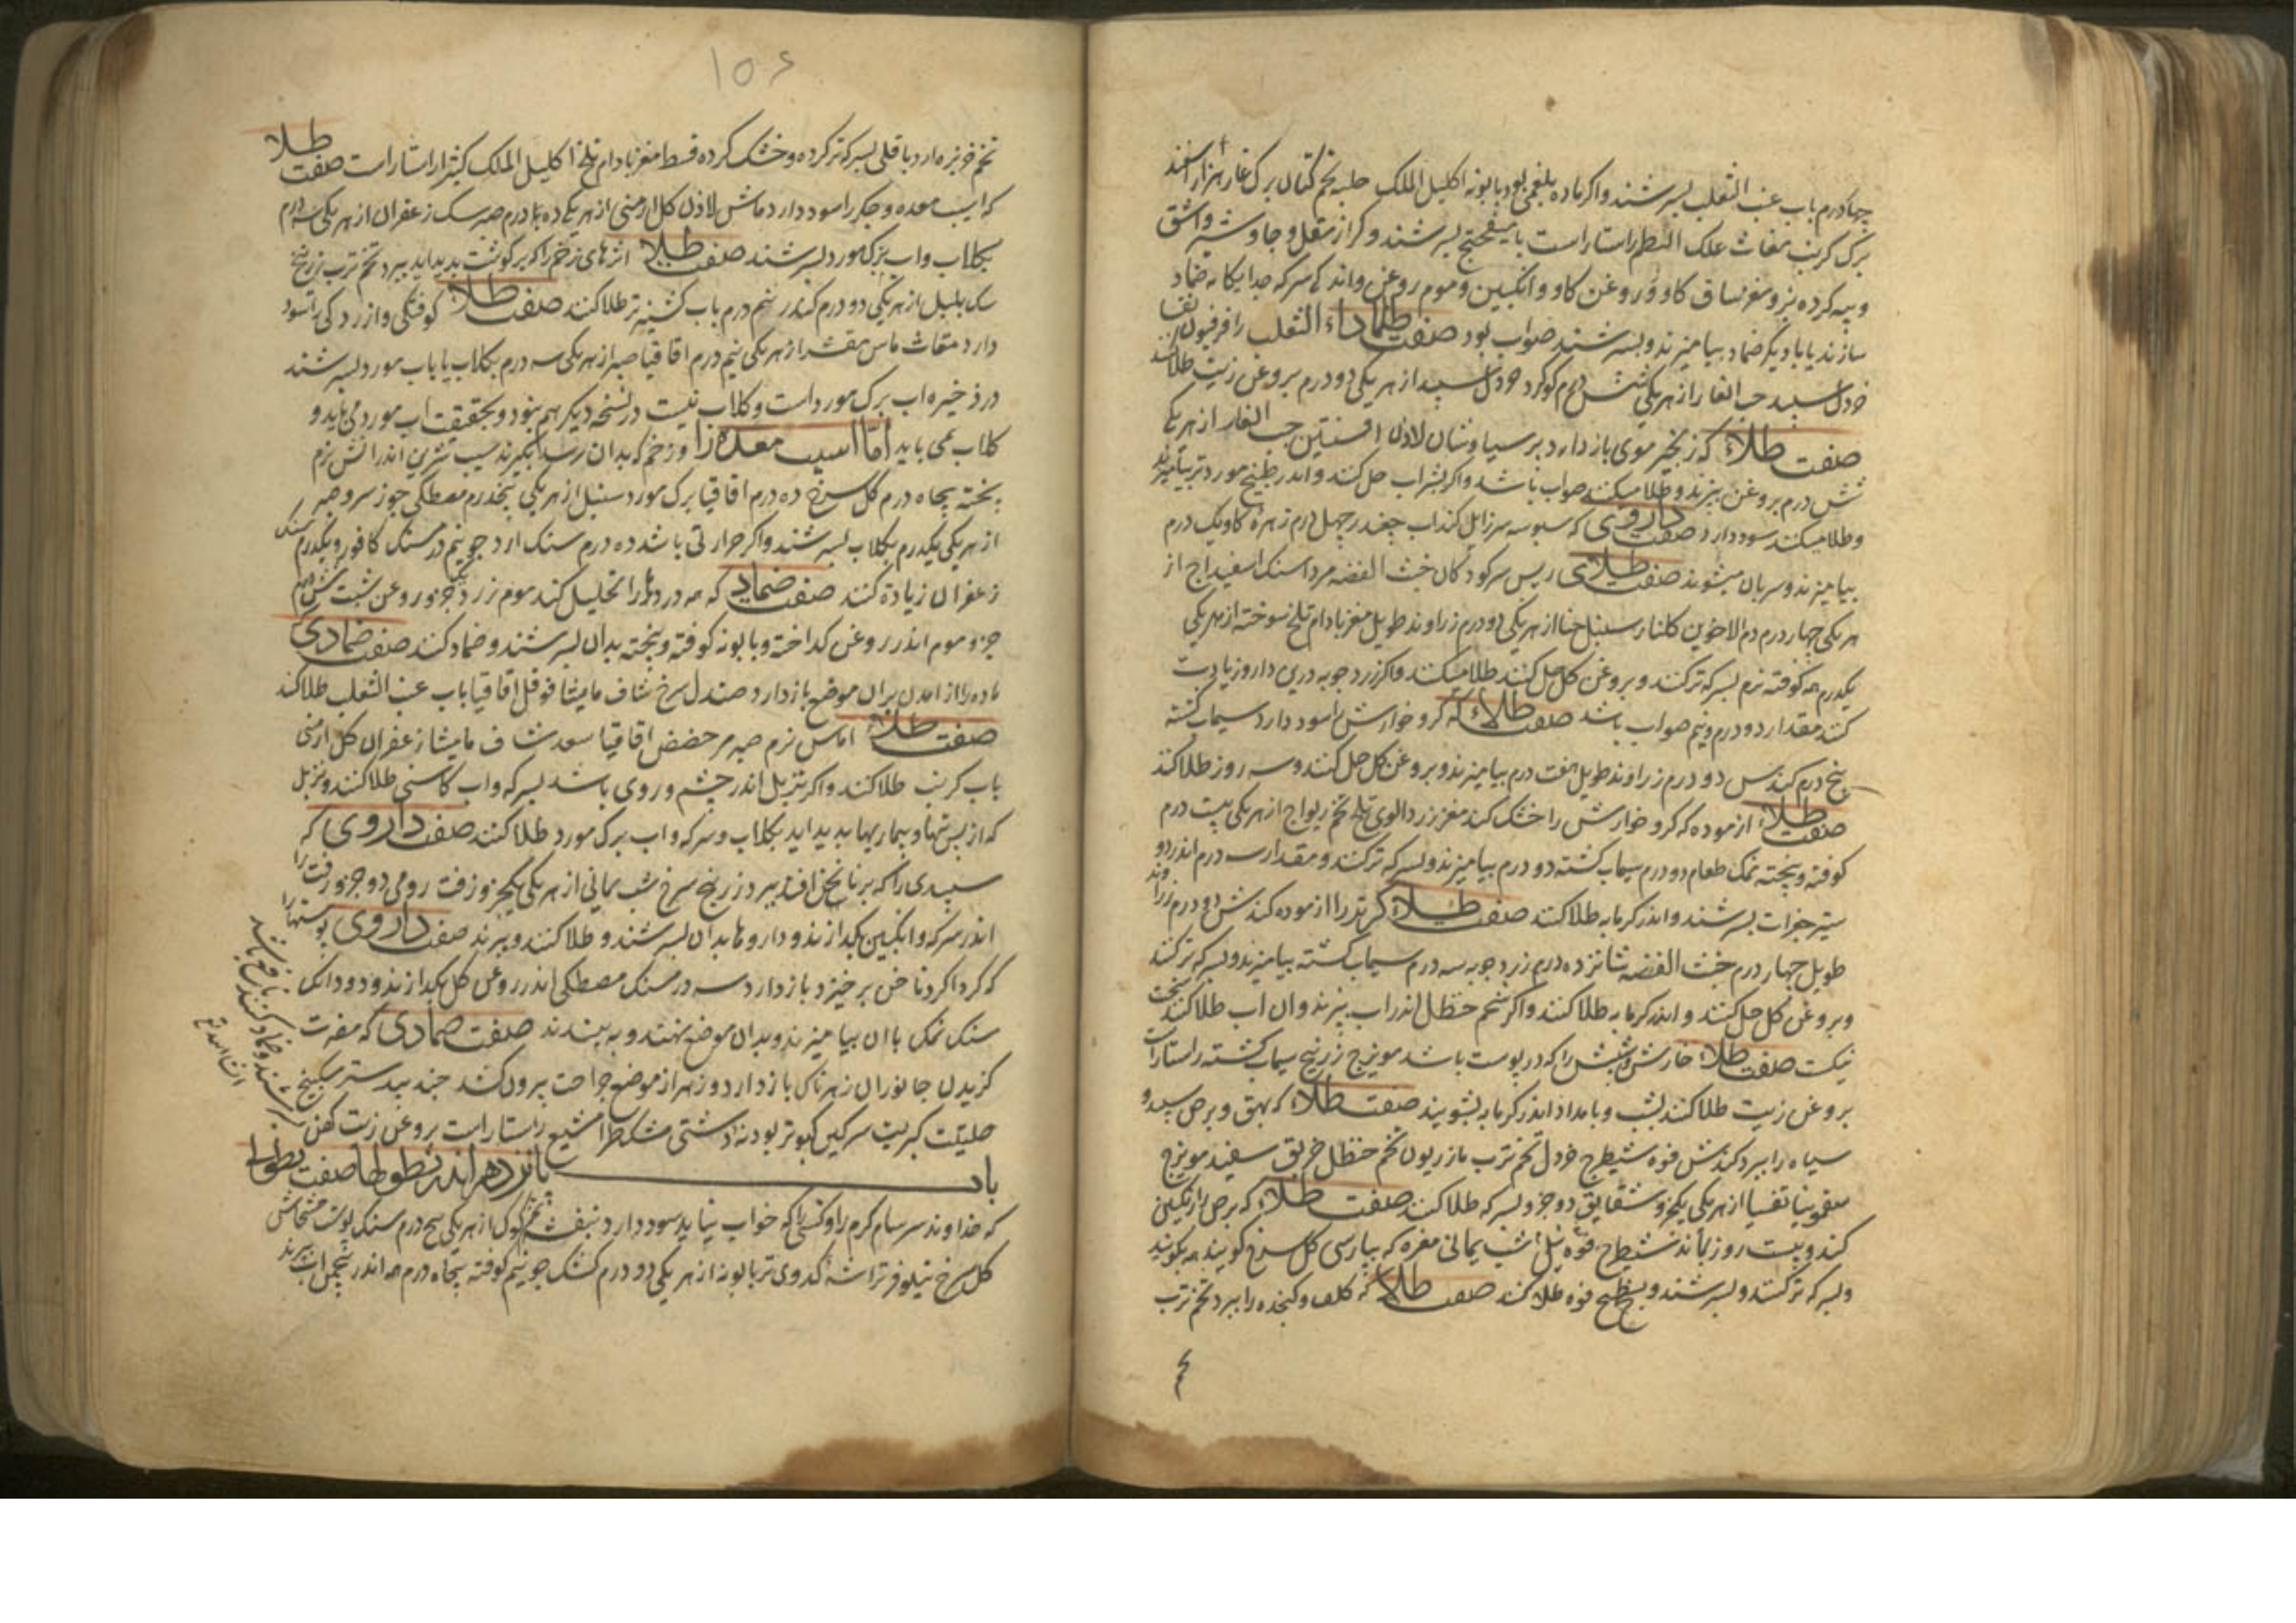 چهار درم باب عنب الثعلب بسرشند واکر ماده بلغمی بود بابونه اکلیل الملک حلبه تخم کتان برک غار هزار اسفند
برک کرنب مغاث علک البطم راستاراست با میفختج بسرشند وکر از مقل وجاوشیر واشق
وپیه کرده بز ومغز ساق کاو وروغن کاو وانکبین وموم روغن واندکی سرکه جداکانه ضماد
سازند یا با دیکر ضماد بیامیزند وبسرشند صواب بود صفت طلا داء الثعلب را فرفیون
خردل سپید حب الغار از هر یکی شش درم کوکرد خردل سپید از هر یکی دو درم بروغن زیت طلا کنند
صفت طلاء که ریختن موی باز دارد پرسیاوشان لادن افسنتین حب الغار از هر یکی
شش درم بروغن بپزند وطلا میکنند صواب باشد واکر بشراب حل کند واندر طبیخ مورد تر بیامیزند
وطلا میکنند سود دارد صفت داروی که سبوسه سر زایل کند اب چغندر چهل درم زهره کاو یک درم
بیامیزند وسر بان میشویند صفت طلای ریش سر کودکان خبث الفضه مرداسنک اسفیداج از
هر یکی چهار درم دم الاخوین کلنار سنبل حنا از هر یکی دو درم زراوند طویل مغز بادام تلخ سوخته از هر یکی
یکدرم همه کوفته نرم بسرکه تر کنند وبروغن کل حل کنند طلا میکنند واکر زرد چوبه درین دارو زیادت
کنند مقدار دو درم ونیم صواب باشد صفت طلاء که کر وخوارش را سود دارد سیماب کشته
پنج درم کندس دو درم زراوند طویل هفت درم بیامیزند وبروغن کل حل کنند وسه روز طلا کنند
صفت طلاء ازموده که کر وخوارش را خشک کند مغز زردالوی تلخ تخم ریواج از هر یکی بیست درم
کوفته وپخته نمک طعام دو درم سیماب کشته دو درم بیامیزند وبسرکه تر کنند ومقدار سه درم اندر دو
ستیر جغرات بسرشند واندر کرمابه طلا کنند صفت طلاء کر تر را ازموده کندش دو درم زراوند
طویل چهار درم خبث الفضه شانزده درم زرد چوبه سه درم سیماب کشته بیامیزند وبسرکه تر کنند
وبروغن کل حل کنند واندر کرمابه طلا کنند واکر شحم حنظل اندر اب بپزند وان اب طلا کنند سخت
نیکست صفت طلاء خارش وشپش را که در پوست باشد مویزج زرنیخ سیماب کشته راستاراست
بروغن زیت طلا کنند بشب وبامداد اندر کرمابه بشویند صفت طلاء که بهق وبرص سپید و
سیاه را ببرد کندش فوه شیطرج خردل تخم ترب مازریون تخم حنظل خربق سفید مویزج
سقمونیا تفسیا از هر یکی یکجزو شقایق دو جزو بسرکه طلا کنند صفت طلاء که برص را رنکین
کند وبیست روز بماند شیطرج فوه نیل شب یمانی مغره که بپارسی کل سرخ کویند همه بکوبند
وبسرکه تر کنند وبسرشند وبطبیخ فوه طلا کنند صفت طلا که کلف وکنجده را ببرد تخم ترب
۱۰۶
تخم خربزه ارد باقلی بسرکه تر کرده وخشک کرده قسط مغز بادام تلخ اکلیل الملک کتیرا راستاراست صفت طلا
که اسیب معده وجکر را سود دارد ماش لادن کل ارمنی از هر یکی ده درم صبر سک زعفران از هر یکی سه درم
بکلاب واب برک مورد بسرشند صفت طلا اثرهای زخم را کر بر کوشت پدید اید ببرد تخم ترب زرنیخ
سک بلبل از هر یکی دو درم کندر نیم درم باب کشنیز تر طلا کنند صفت طلا کوفتکی وازردکی را سود
دارد مغاث ماش مقشر از هر یکی نیم درم اقاقیا صبر از هر یکی سه درم بکلاب یا باب مورد بسرشند
در ذخیره اب برک مورد است وکلاب نیست در نسخه دیکر هم نبود وبحقیقت اب مورد می باید و
کلاب نمی باید اما اسیب معده را وزخم که بدان رسد بکیرند سیب شیرین اندر اتش نرم
پخته پنجاه درم کل سرخ ده درم اقاقیا برک مورد سنبل از هر یکی پنجدرم مصطکی جوز سرو صبر
از هر یکی یکدرم بکلاب بسرشند واکر حرارتی باشد ده درم سنک ارد جو نیم درمسنک کافور ویکدرم سنک
زعفران زیاده کنند صفت ضماد که همه دردها را تحلیل کند موم زرد جزو روغن شبت شش
جزو موم اندر روغن کداخته وبابونه کوفته وپخته بدان بسرشند وضماد کنند صفت ضمادی که
ماده را از امدن بران موضع باز دارد صندل سرخ شاف مامیثا فوفل اقاقیا باب عنب الثعلب طلا کنند
صفت طلاء اماس نرم صبر مر حضض اقاقیا سعد شاف مامیثا زعفران کل ارمنی
باب کرنب طلا کنند واکر تربل اندر چشم وروی باشد بسرکه واب کاسنی طلا کنند وتربل
که از پس تبها وبیماریها پدید اید بکلاب وسرکه واب برک مورد طلا کنند صفت داروی که
سپیدی را که بر ناخن افتد ببرد زرنیخ سرخ شب یمانی از هر یکی یکجزو زفت رومی دو جزو زفت را
اندر سرکه وانکبین بکدازند وداروها بدان بسرشند وطلا کنند وببرند صفت داروی پوستها را
که کرداکرد ناخن برخیزد باز دارد سه درمسنک مصطکی اندر روغن کل بکدازند ودو دانک
سنک نمک با ان بیامیزند وبدان موضع نهند وببندند صفت ضمادی که مضرت
کزیدن جانوران زهرناک باز دارد وزهر از موضع جراحت بیرون کشد جند بیدستر سکبینج
حلتیت کبریت سرکین کبوتر پودنه دشتی مشکطرامشیع راستاراست بروغن زیت کهن
بسرشند وضماد کنند نافع باشد
ان شاء الله تع
باب پانزدهم اندر نطولها صفت نطولی
که خداوند سرسام کرم را وکسی را که خواب نیاید سود دارد بنفشه تخم کوک از هر یکی پنج درم سنک پوست خشخاش
کل سرخ نیلوفر تراشه کدوی تر بابونه از هر یکی دو درم کشک جو نیم کوفته پنجاه درم همه اندر پنج من اب بپزند